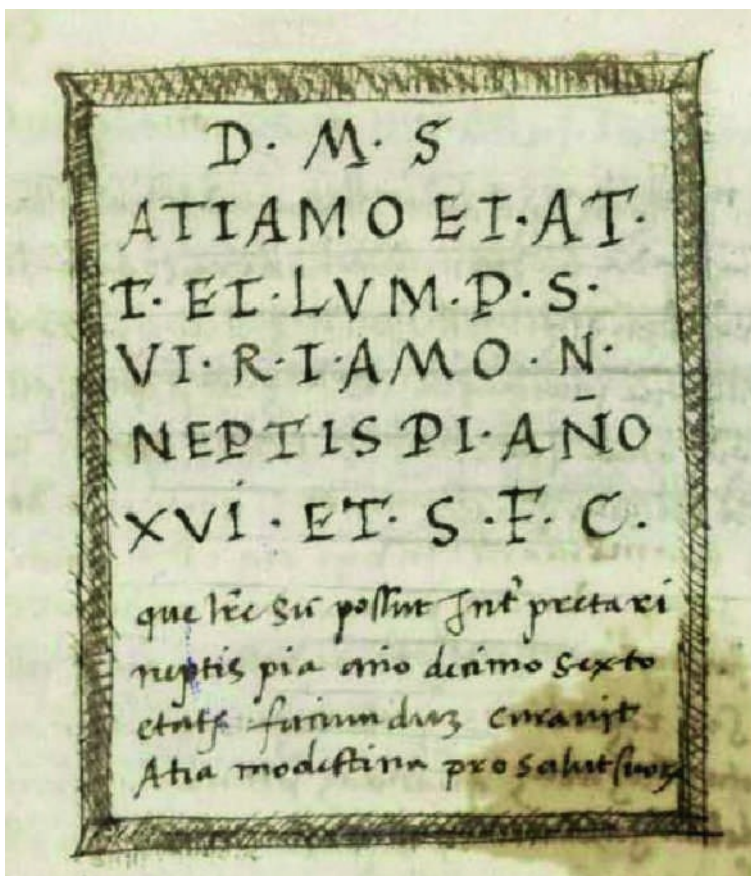 D · M · S
ATIAMO ET · AT ·
T · ET · LVM · P · S ·
VI · R · I · AMO · N ·
NEPTIS PI · AN̄O
XVI · ET · S · F · C ·
que lr̄e sū possūt Int̄pretari
neptis pia año decimo sexto
etatꝭ faciunduȝ curavit
Atia modestina pro salut suoꝝ